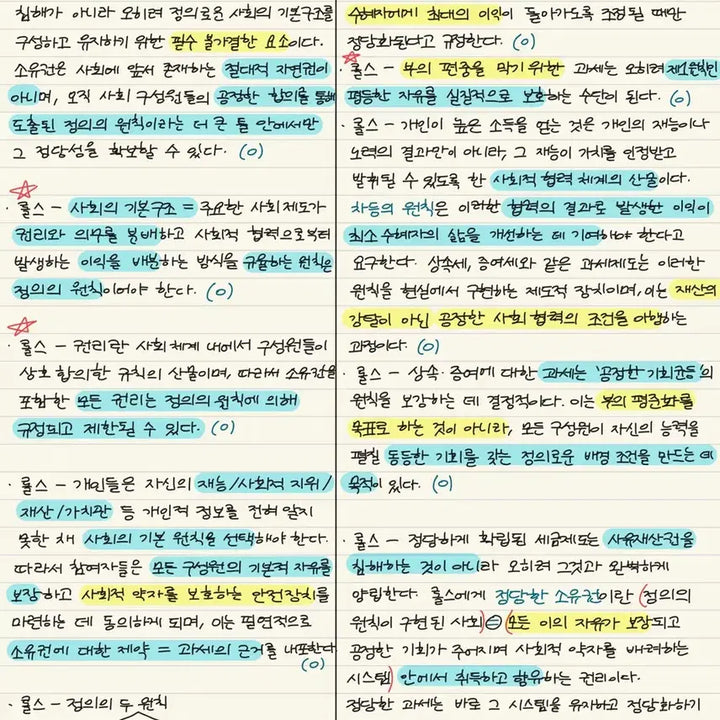 침해가 아니라 오히려 정의로운 사회의 기본구조를
구성하고 유지하기 위한 필수 불가결한 요소이다.
소유권은 사회에 앞서 존재하는 절대적 자연권이
아니며, 오직 사회 구성원들의 공정한 합의를 통해
도출된 정의의 원칙이라는 더 큰 틀 안에서만
그 정당성을 확보할 수 있다. (O)
· 롤스 - 사회의 기본구조 = 주요한 사회 제도가
권리와 의무를 분배하고 사회적 협력으로부터
발생하는 이익을 배분하는 방식을 규율하는 원칙은
정의의 원칙이어야 한다. (O)
· 롤스 - 권리란 사회 체계 내에서 구성원들이
상호 합의한 규칙의 산물이며, 따라서 소유권을
포함한 모든 권리는 정의의 원칙에 의해
규정되고 제한될 수 있다. (O)
· 롤스 - 개인들은 자신의 재능/사회적 지위/
재산/가치관 등 개인적 정보를 전혀 알지
못한 채 사회의 기본 원칙을 선택해야 한다.
따라서 참여자들은 모든 구성원의 기본적 자유를
보장하고 사회적 약자를 보호하는 안전장치를
마련하는 데 동의하게 되며, 이는 필연적으로
소유권에 대한 제약 = 과세의 근거를 내포한다
(O)
· 롤스 - 정의의 두 원칙
수혜자에게 최대의 이익이 돌아가도록 조정될 때만
정당화된다고 규정한다. (O)
· 롤스 - 부의 편중을 막기 위한 과세는 오히려 제1원칙인
평등한 자유를 실질적으로 보호하는 수단이 된다. (O)
· 롤스 - 개인이 높은 소득을 얻는 것은 개인의 재능이나
노력의 결과만이 아니라, 그 재능이 가치를 인정받고
발휘될 수 있도록 한 사회적 협력 체계의 산물이다.
차등의 원칙은 이러한 협력의 결과로 발생한 이익이
최소 수혜자의 삶을 개선하는 데 기여해야 한다고
요구한다. 상속세, 증여세와 같은 과세제도는 이러한
원칙을 현실에서 구현하는 제도적 장치이며, 이는 재산의
강탈이 아닌 공정한 사회 협력의 조건을 이행하는
과정이다. (O)
· 롤스 - 상속·증여에 대한 과세는 '공정한 기회균등'의
원칙을 보강하는 데 결정적이다. 이는 부의 평준화를
목표로 하는 것이 아니라, 모든 구성원이 자신의 능력을
펼칠 동등한 기회를 갖는 정의로운 배경 조건을 만드는 데
목적이 있다. (O)
· 롤스 - 정당하게 확립된 세금제도는 사유재산권을
침해하는 것이 아니라 오히려 그것과 완벽하게
양립한다. 롤스에게 정당한 소유권이란 (정의의
원칙이 구현된 사회) = (모든 이의 자유가 보장되고
공정한 기회가 주어지며 사회적 약자를 배려하는
시스템) 안에서 취득하고 향유하는 권리이다.
정당한 과세는 바로 그 시스템을 유지하고 정당화하기